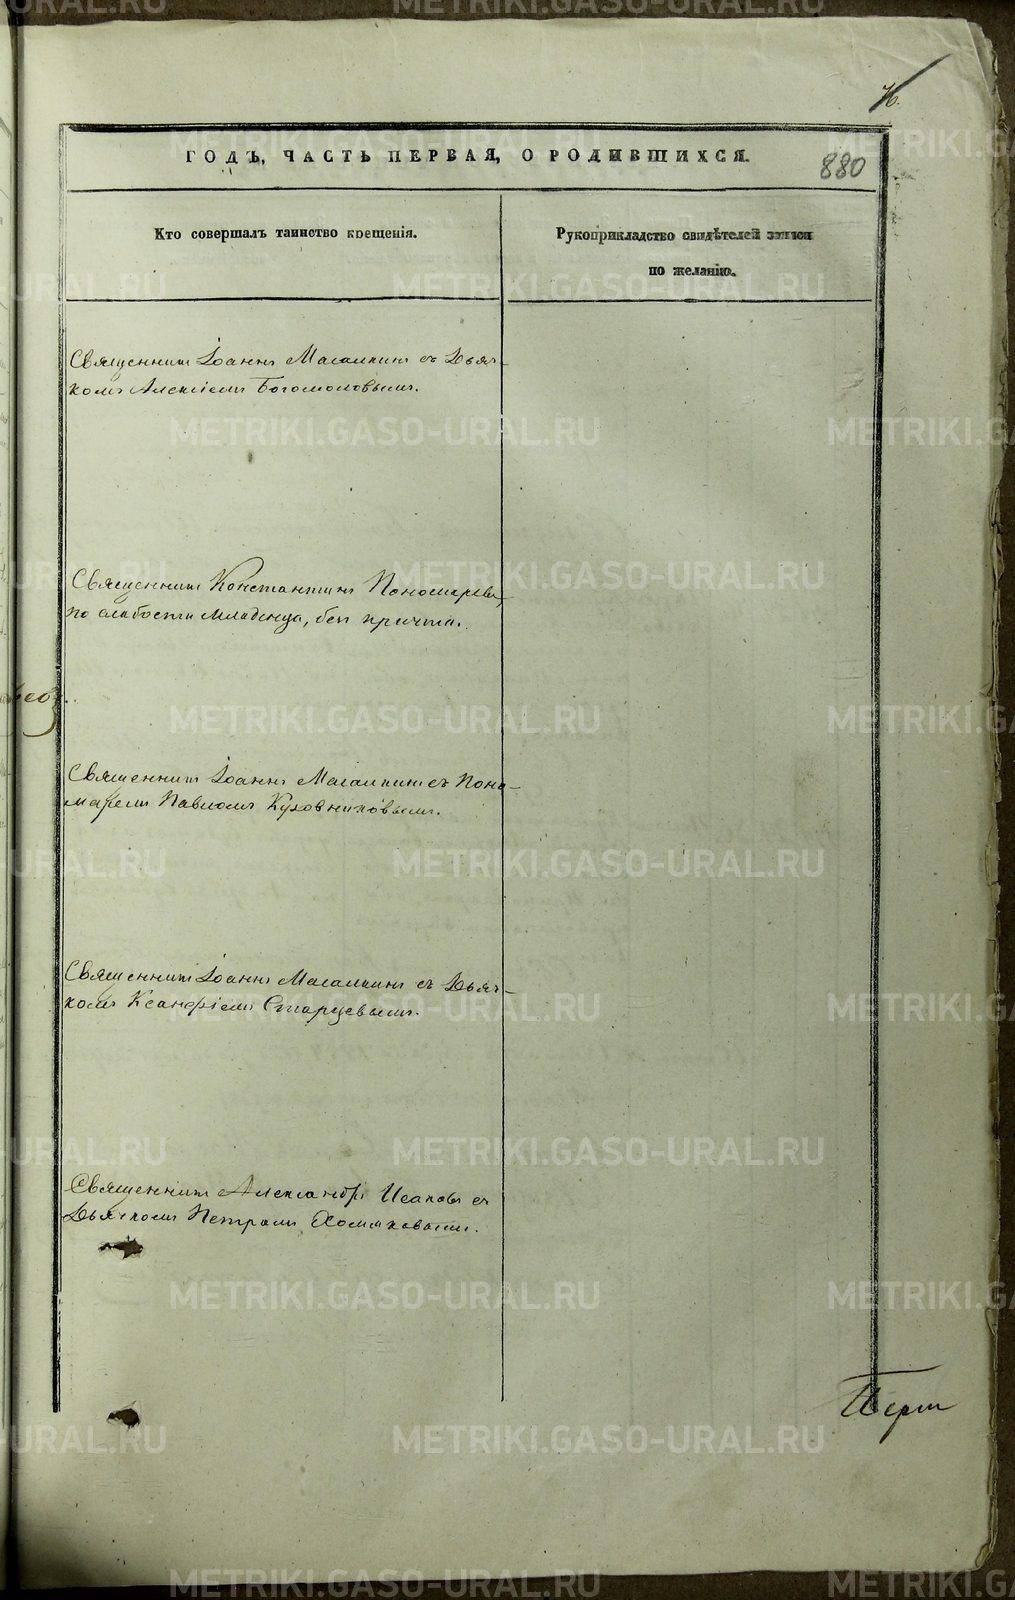 76.
ГОДЪ, ЧАСТЬ ПЕРВАЯ, О РОДИВШИХСЯ.
880
Кто совершалъ таинство крещенія.
Рукоприкладство свидѣтелей записи
по желанію.
Священникъ Іоаннъ Масалкинъ съ Дьяч-
комъ Алексіемъ Богомоловымъ.
Священникъ Константинъ Пономаревъ,
по слабости младенца, безъ причта.
Священникъ Іоаннъ Масалкинъ съ Поно-
маремъ Павломъ Кузовниковымъ.
Священникъ Іоаннъ Масалкинъ съ Дьяч-
комъ Ксанфіемъ Старцевымъ.
Священникъ Александръ Исаковъ съ
Дьячкомъ Петромъ Хомяковымъ.
METRIKI.GASO-URAL.RU